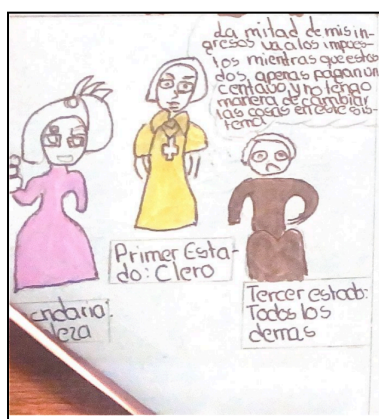 La mitad de mis in-
gresos va a los impues-
tos mientras que estos
dos, apenas pagan un
centavo y no tengo
manera de cambiar
las cosas en este sis-
tema
Primer Esta-
do: Clero
Tercer estado:
Todos los
demas